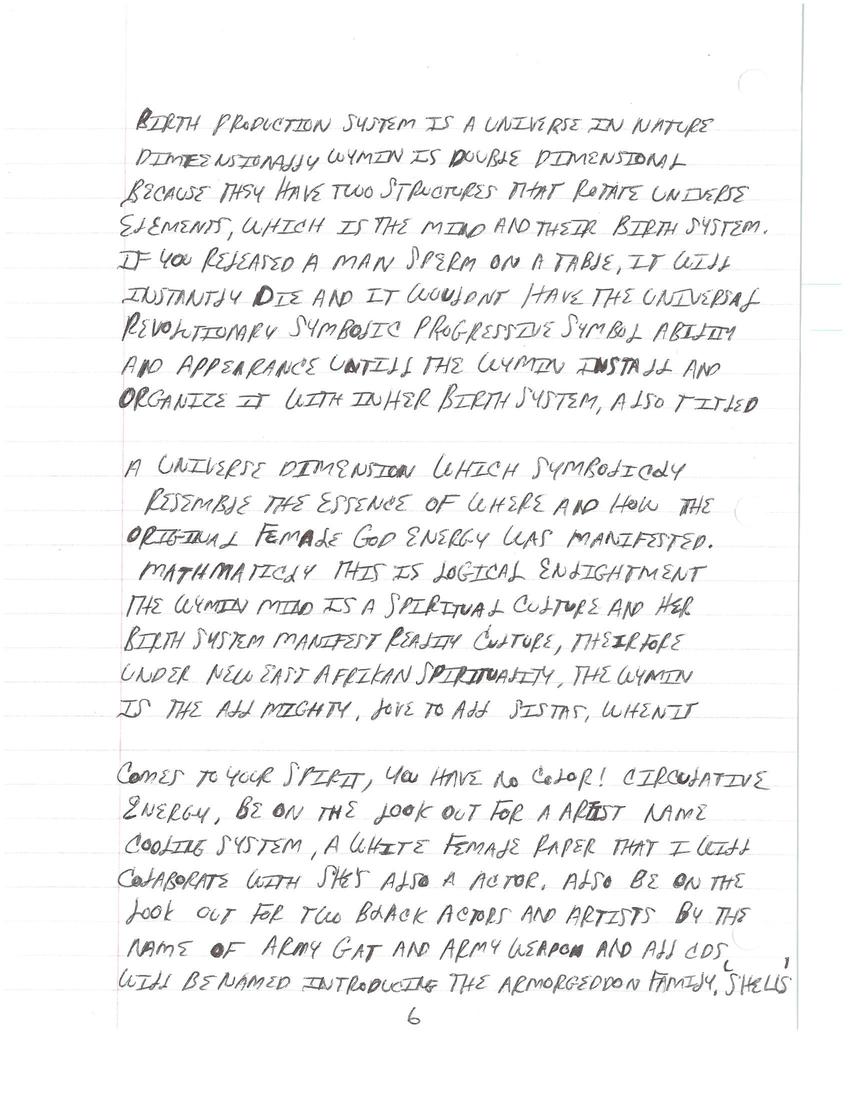 BIRTH PRODUCTION SYSTEM IS A UNIVERSE IN NATURE
DIMEENSIONALLY WYMIN IS DOUBLE DIMENSIONAL
BECAUSE THEY HAVE TWO STRUCTURES THAT ROTATE UNIVERSE
ELEMENTS, WHICH IS THE MIND AND THEIR BIRTH SYSTEM.
IF YOU RELEASED A MAN SPERM ON A TABLE, IT WILL
INSTANTLY DIE AND IT WOULDNT HAVE THE UNIVERSAL
REVOLTIONARY SYMBOLIC PROGRESSIVE SYMBOL ABILITY
AND APPEARANCE UNTILL THE WYMIN INSTALL AND
ORGANIZE IT WITH IN HER BIRTH SYSTEM, ALSO TITLED
A UNIVERSE DIMENSION WHICH SYMBOLICLY
RESEMBLE THE ESSENCE OF WHERE AND HOW THE
ORIGINAL FEMALE GOD ENERGY WAS MANIFESTED.
MATHMATICLY THIS IS LOGICAL ENLIGHTMENT
THE WYMIN MIND IS A SPIRITUAL CULTURE AND HER
BIRTH SYSTEM MANIFEST REALITY CULTURE, THEIRFORE
UNDER NEW EAST AFRIKAN SPIRITUALITY, THE WYMIN
IS THE ALL MIGHTY, LOVE TO ALL SISTAS, WHEN IT
COMES TO YOUR SPIRIT, YOU HAVE NO COLOR! CIRCULATIVE
ENERGY, BE ON THE LOOK OUT FOR A ARTIST NAME
COOLING SYSTEM, A WHITE FEMALE RAPER THAT I WILL
COLABORATE WITH SHE'S ALSO A ACTOR. ALSO BE ON THE
LOOK OUT FOR TWO BLACK ACTORS AND ARTISTS BY THE
NAME OF ARMY GAT AND ARMY WEAPON AND ALL CDS
WILL BE NAMED INTRODUCING THE ARMORGEDDON FAMILY, SHELLS'
6